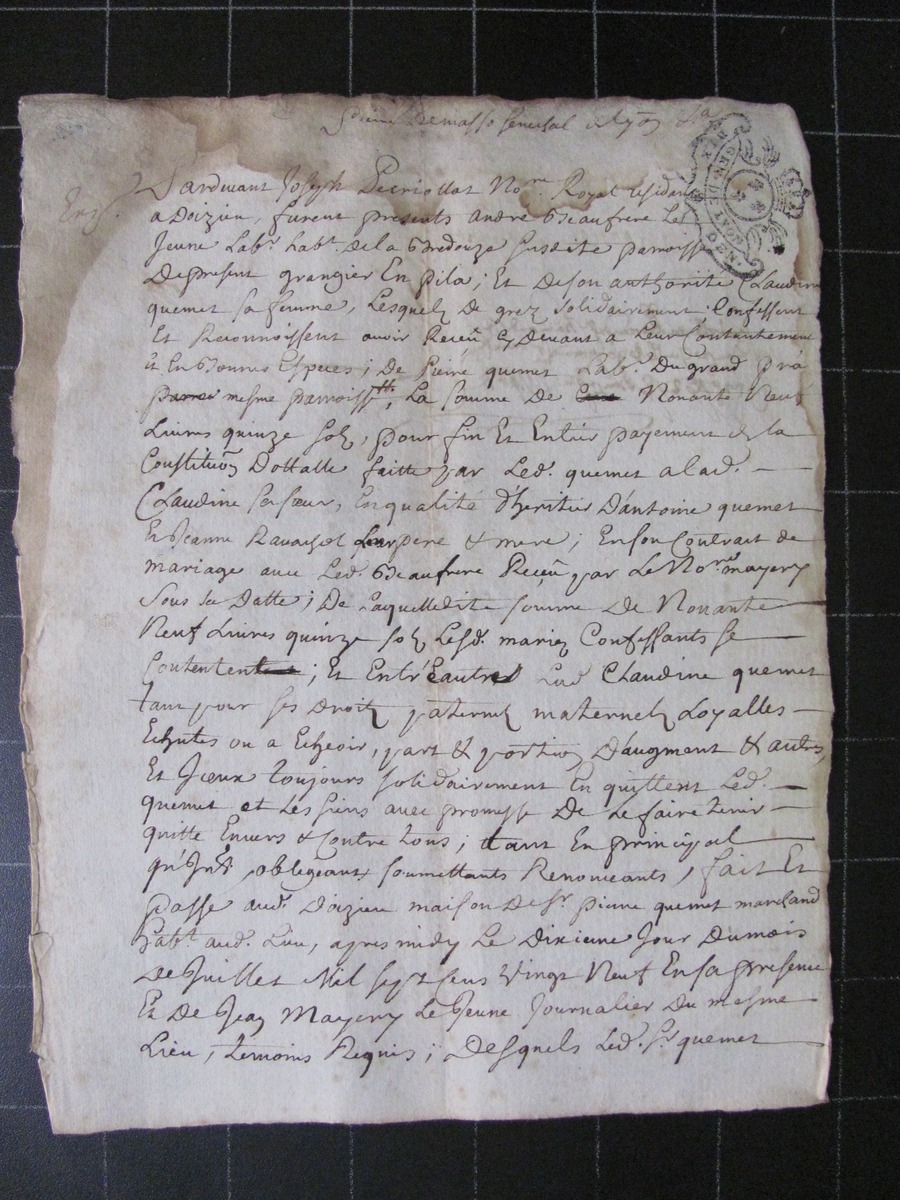 Pardevant Joseph Decriollat No.re Royal residant
a Doizieu, furent presents andré Beaufrere Le
Jeune Lab.r hab.t de la Bredouze susdite parroisse
De present grangier En pila ; Et De son authorité Claudine
quemet sa femme, Lesquels De grez solidairement Confessent
Et Reconnoissent avoir Receu Cy Devant a Leur Contentement
Et En Bonnes Especes ; De Pierre quemet Lab.r Du grand pra
mesme parroisse, La somme De Nonante Neuf
Livres quinze solz, pour fin Et Entier payement de la
Constitution Dottalle faitte par Led. quemet a lad.
Claudine sa sœur, En qualité d'heritier D'antoine quemet
Et Jeanne Ravachol Leur pere & mere ; En son Contrait de
mariage avec Led. Beaufrere Receu par Le No.re mayery
sous sa Datte ; De Laquelledite somme de Nonante
Neuf Livres quinze solz Lesd. mariez Confessants se
Contentent ; Et Entr'Eautres Lad Claudine quemet
tant pour ses Droitz paternelz maternelz Loyalles
Echutes ou a Echeoir, part & portion D'augment & autres
Et Iceux toujours solidairement En quittent Led.
quemet et Les siens avec promesse De Le faire tenir
quitte Envers & Contre tous ; tant En principal
qu'Int. obligeants soumettants Renonceants, fait Et
passé aud. Doizieu maison De Sr. pierre quemet marchand
hab.t aud. Lieu, apres midy Le Dixieme Jour Du mois
De Juillet Mil sept Cens Vingt Neuf En sa presence
Et De Jean Mayery Le Jeune Journalier Du mesme
Lieu, temoins Requis ; Desquels Led. Sr. quemet